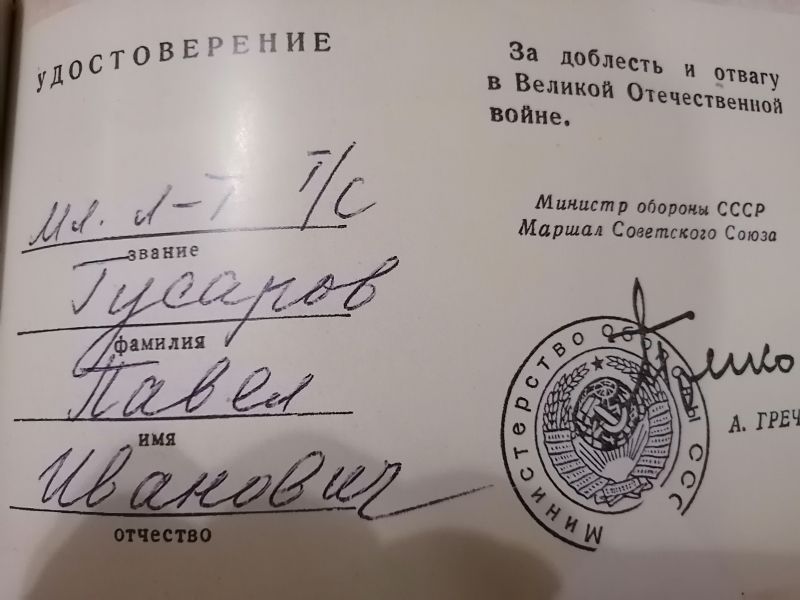 УДОСТОВЕРЕНИЕ
Мл. л-т т/с
звание
Гусаров
фамилия
Павел
имя
Иванович
отчество
За доблесть и отвагу
в Великой Отечественной
войне.
Министр обороны СССР
Маршал Советского Союза
Министерство Обороны СССР
А. ГРЕЧ